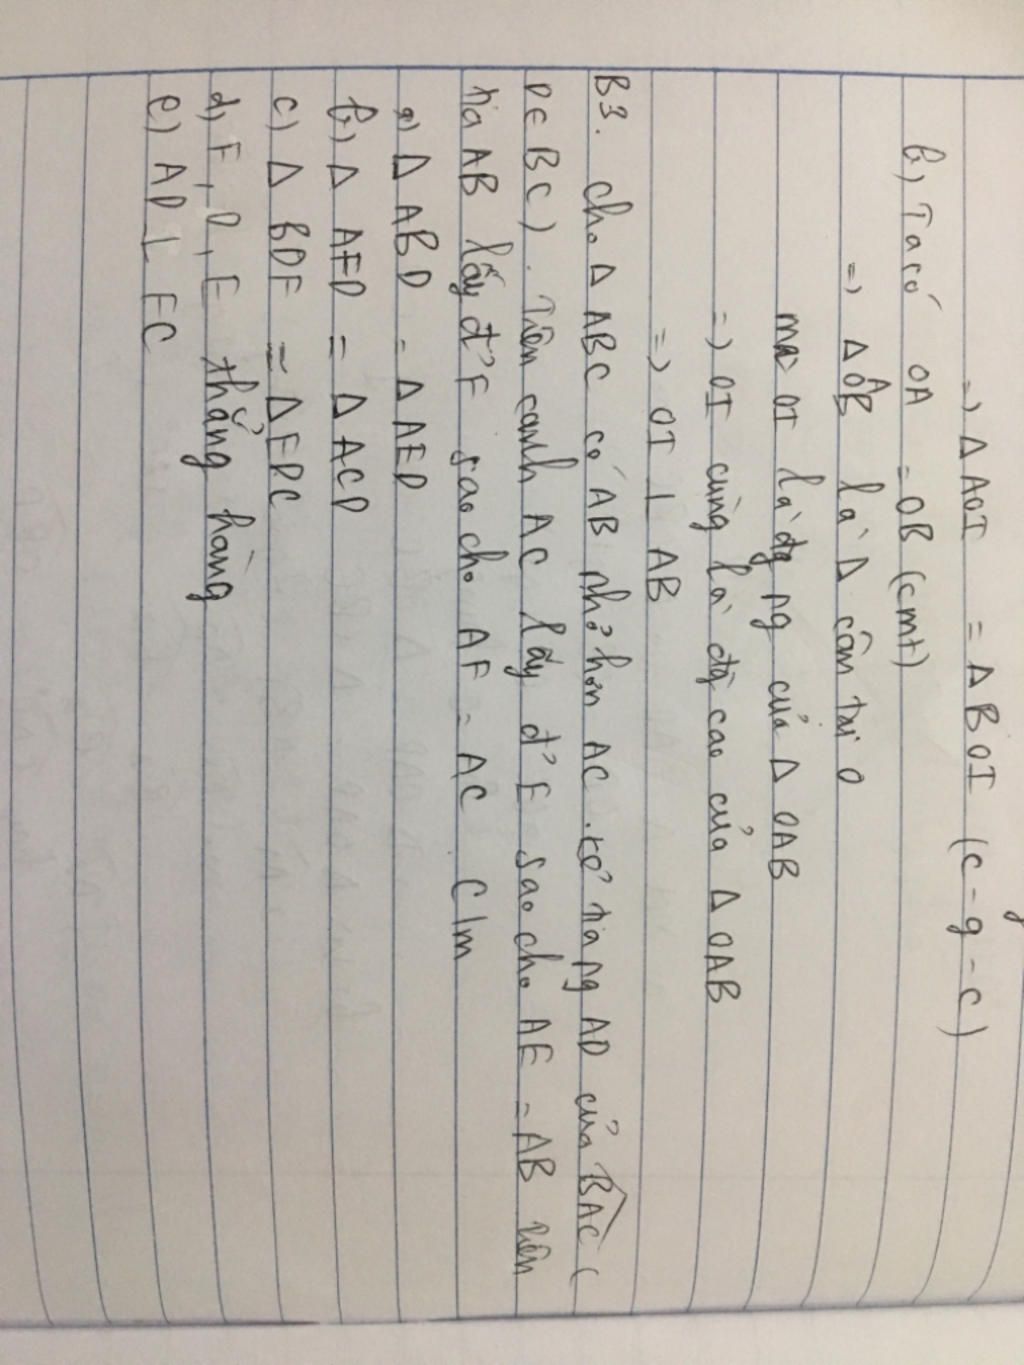 =) Δ AOI = Δ BOI (c-g-c)
b,) Ta có OA = OB (cmt)
=) Δ OAB là Δ cân tại O
mà OI là đg pg của Δ OAB
=) OI cũng là đg cao của Δ OAB
=) OI ⊥ AB
B3. cho Δ ABC có AB nhỏ hơn AC. kẻ tia pg AD của BAC (
D∈ BC). Trên cạnh AC lấy đ' E sao cho AE = AB trên
tia AB lấy đ' F sao cho AF = AC C/m
a) Δ ABD = Δ AED
b,) Δ AFD = Δ ACD
c) Δ BDF = Δ EDC
d) F, D, E thẳng hàng
e) AD ⊥ FC